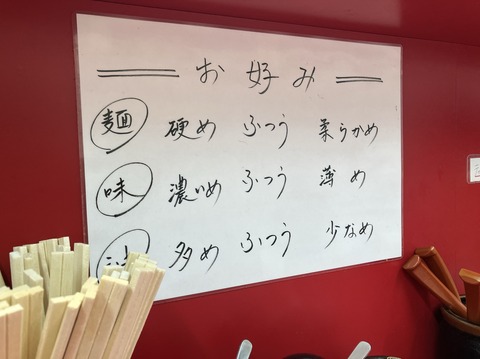 お好み
麺 硬め ふつう 柔らかめ
味 濃いめ ふつう 薄め
多め ふつう 少なめ